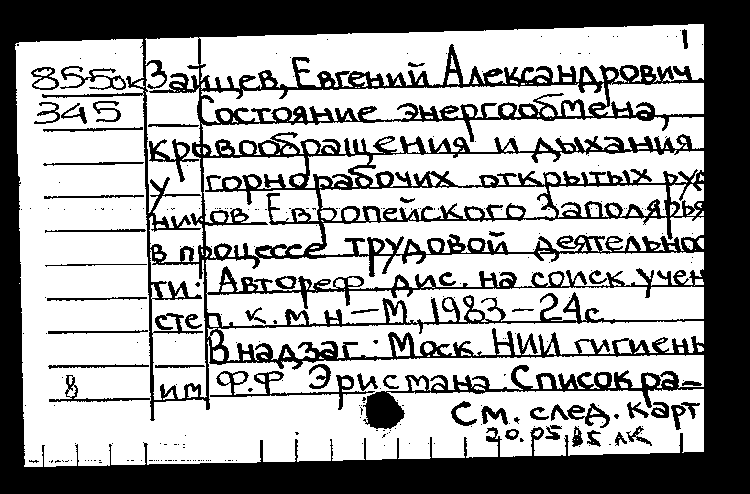 1
855ок Зайцев, Евгений Александрович.
345 Состояние энергообмена,
кровообращения и дыхания
у горнорабочих открытых руд
ников Европейского Заполярья
в процессе трудовой деятельнос
ти: Автореф. дис. на соиск. учен
степ. к. м. н. — М., 1983 — 24 с.
В надзаг.: Моск. НИИ гигиены
8 им Ф.Ф Эрисмана. Список ра-
См. след. карт
20.05.85 лк